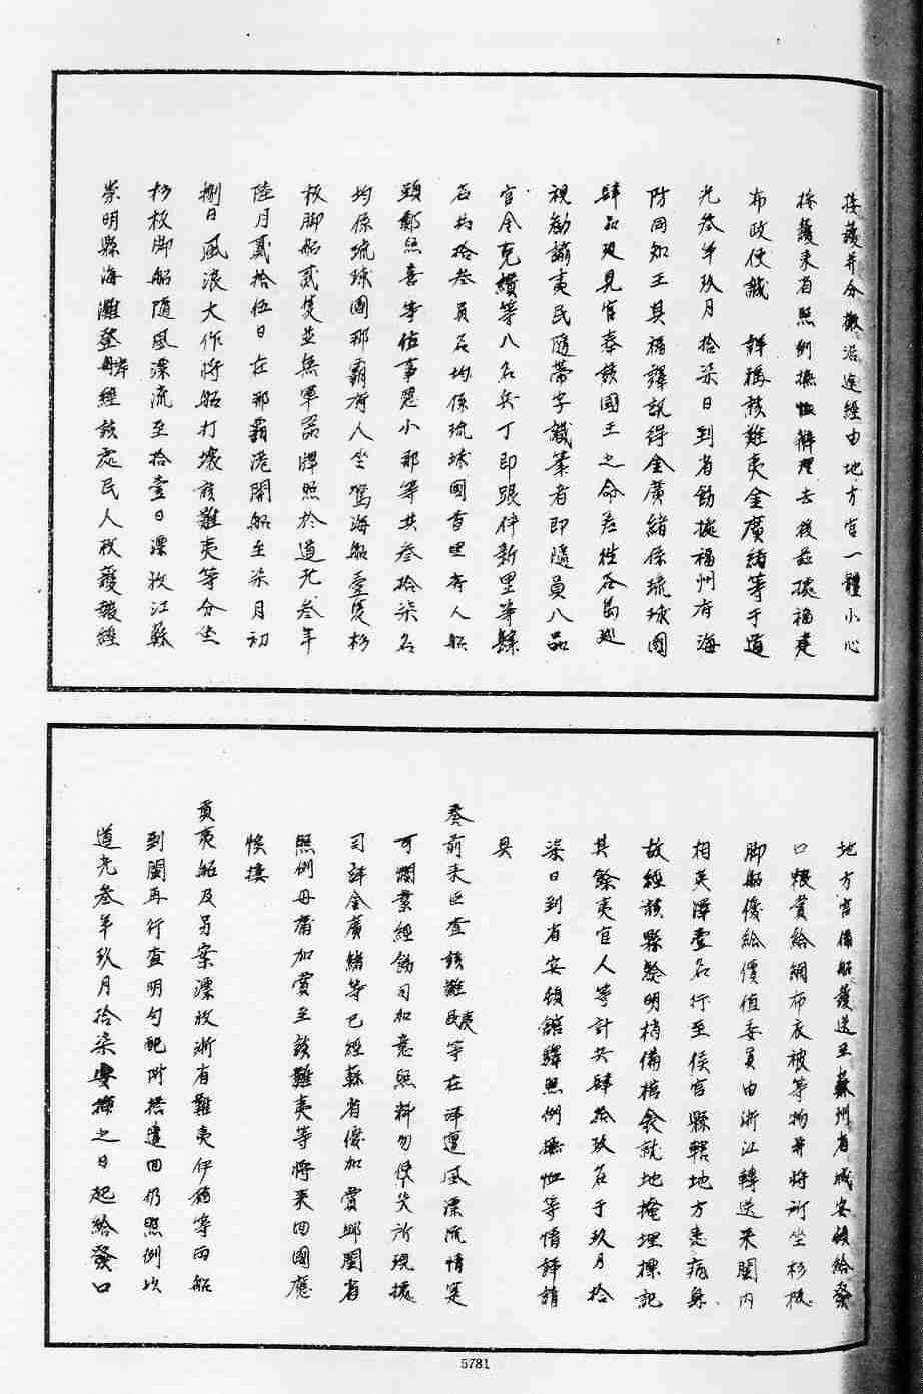 接護并分檄沿途經由地方官一體小心
採護來省照例撫恤辦理去後茲據福建
布政使誠　詳稱該難夷金廣緒等于道
光叁年玖月拾柒日到省飭據福州府海
防同知王其福譯訊得金廣緒係琉球國
肆品現見官奉該國王之命差往谷島巡
視勸諭夷民隨帶字識筆者即隨員八品
官金克纘等八名兵丁即跟伴新里等肆
名共拾叁員名均係琉球國首里府人船
頭鄭照喜等佐事恩小那等共叁拾柒名
均係琉球國那霸府人坐駕海船壹隻杉
板脚船貳隻並無軍器牌照於道光叁年
陸月貳拾伍日在那霸港開船至柒月初
捌日風浪大作將船打壞該難夷等分坐
杉板脚船隨風漂流至拾壹日漂收江蘇
崇明縣海灘登岸經該處民人救護報經
地方官備船護送至蘇州省城安頓給發
口糧賞給綢布衣被等物并將所坐杉板
脚船優給價值委員由浙江轉送來閩內
相英澤壹名行至侯官縣轄地方患病身
故經該縣驗明棺備棺衾就地掩埋標記
其餘夷官人等計共肆拾玖名于玖月拾
柒日到省安頓館驛照例撫恤等情詳請
具
奏前來臣查該難夷民等在洋遭風漂流情寔
可憫業經飭司加意照料勿使失所現據
司詳金廣緒等已經蘇省優加賞䘏閩省
照例毋庸加賞至該難夷等將來回國應
俟接
貢夷船及另案漂收浙省難夷伊獨等兩船
到閩再行查明勻配附搭遣回仍照例以
道光叁年玖月拾柒安插之日起給發口
5781